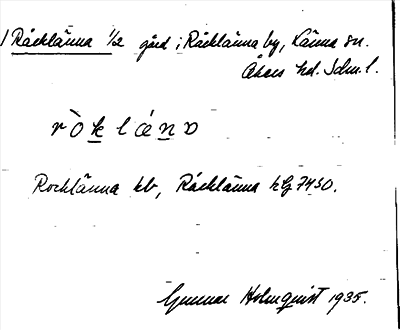 1 Räcklänna 1/2 gård i Räcklänna by, Länna sn.
Åkers hd. Sdm. l.
ròklánɒ
Rocklänna kb, Räcklänna hG 7450.
Gunnar Holmquist 1935.